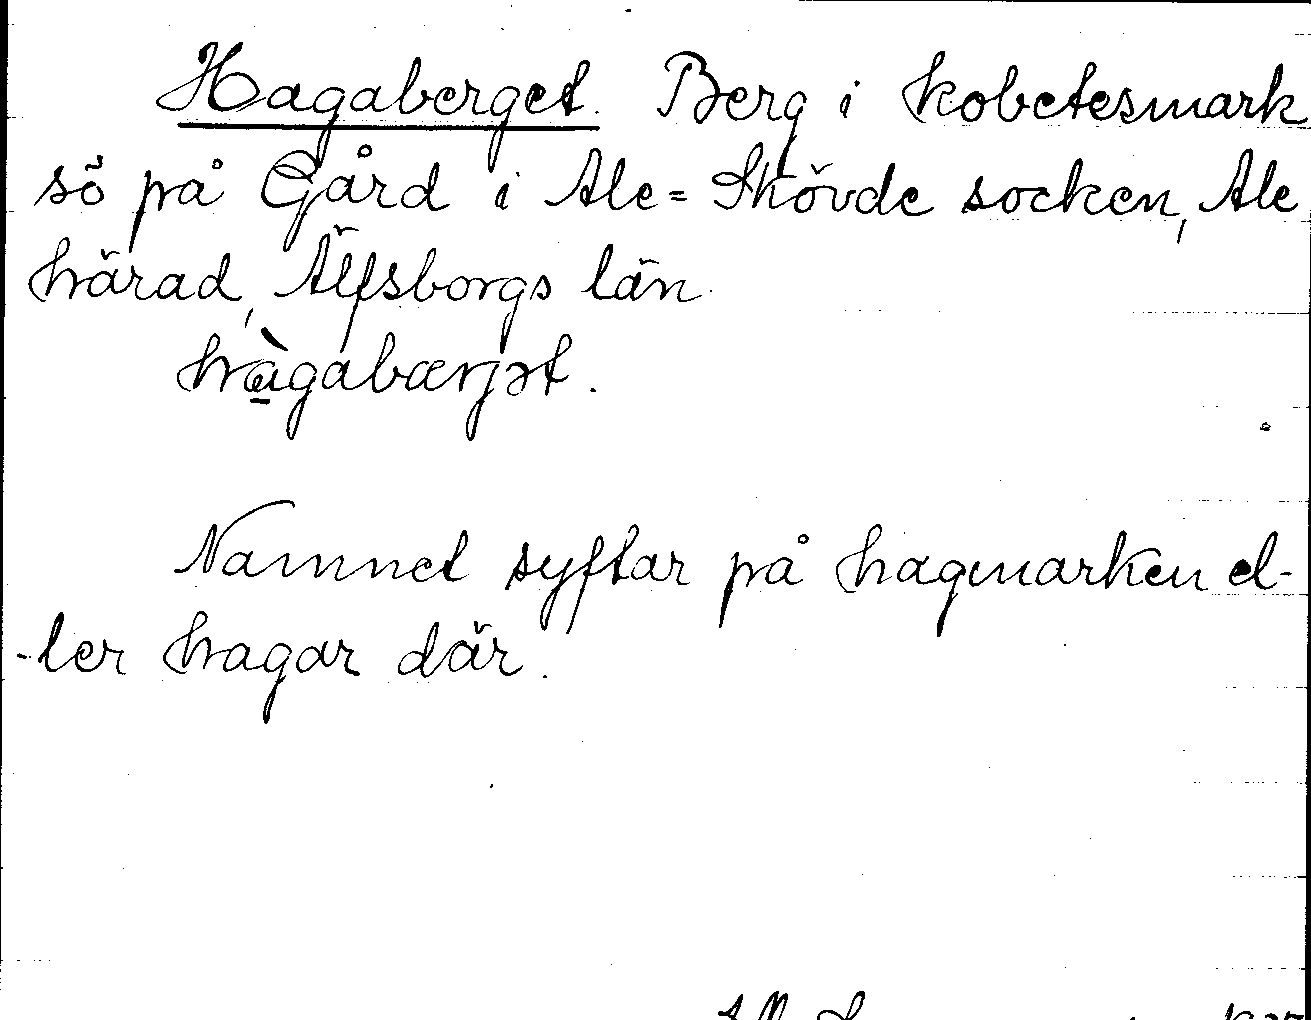 Hagaberget. Berg i kobetesmark
sö på Gård i Ale=Skövde socken, Ale
härad, Älfsborgs län.
hàgabærjət.
Namnet syftar på hagmarken el-
-ler hagar där.